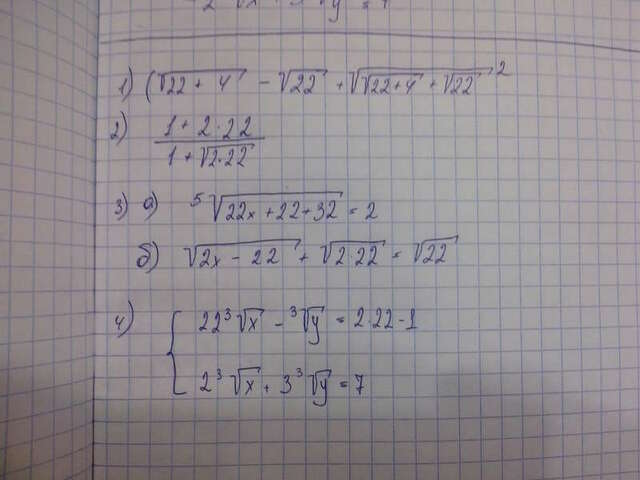 2 √x + 3 √y = 7
1) (√22 + 4 - √22 + √√22+4 + √22 ²
2) 1 + 2·22
1 + √2·22
3) а) ⁵√22x + 22 + 32 = 2
б) √2x - 22 + √2·22 = √22
4) { 22 ³√x - ³√y = 2·22-1
2 ³√x + 3 ³√y = 7